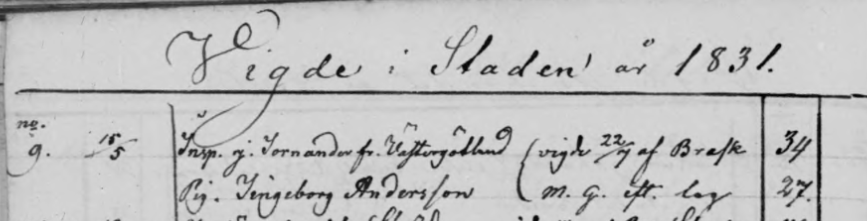 Vigde i Staden år 1831.
no. 9. 15/5 Insp. g. Tornander fr. Västergötland (vigde 22/7 af Brask 34
Pig. Ingeborg Andersson (m. g. eft. lag 27.